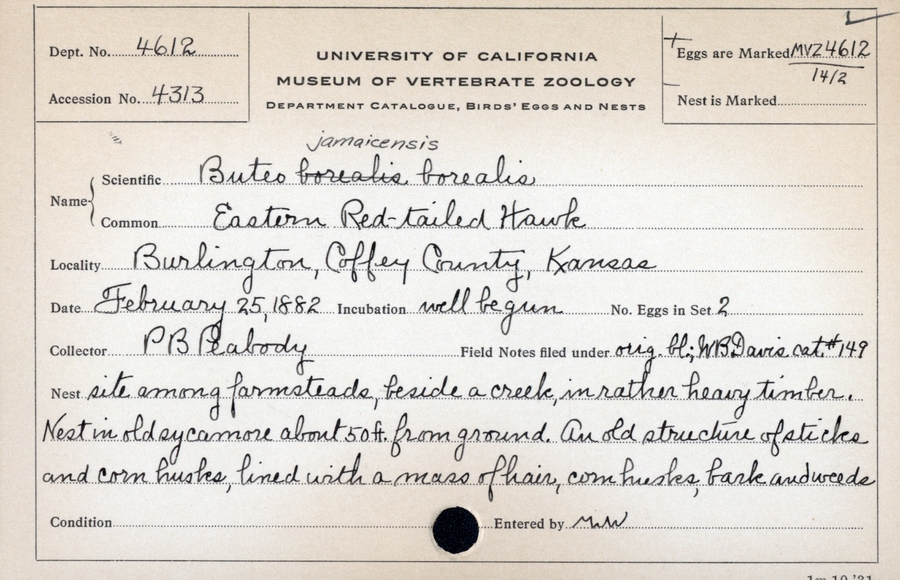 Dept. No. 4612
Accession No. 4313
UNIVERSITY OF CALIFORNIA
MUSEUM OF VERTEBRATE ZOOLOGY
DEPARTMENT CATALOGUE, BIRDS' EGGS AND NESTS
Eggs are Marked MVZ 4612
14/2
Nest is Marked
jamaicensis
Name Scientific Buteo borealis borealis
Common Eastern Red-tailed Hawk
Locality Burlington, Coffey County, Kansas
Date February 25, 1882 Incubation well begun No. Eggs in Set 2
Collector P B Peabody Field Notes filed under orig. bl; WB Davis cat. #149
Nest site among farmsteads, beside a creek, in rather heavy timber.
Nest in old sycamore about 50 ft. from ground. An old structure of sticks
and corn husks, lined with a mass of hair, corn husks, bark and weeds
Condition Entered by